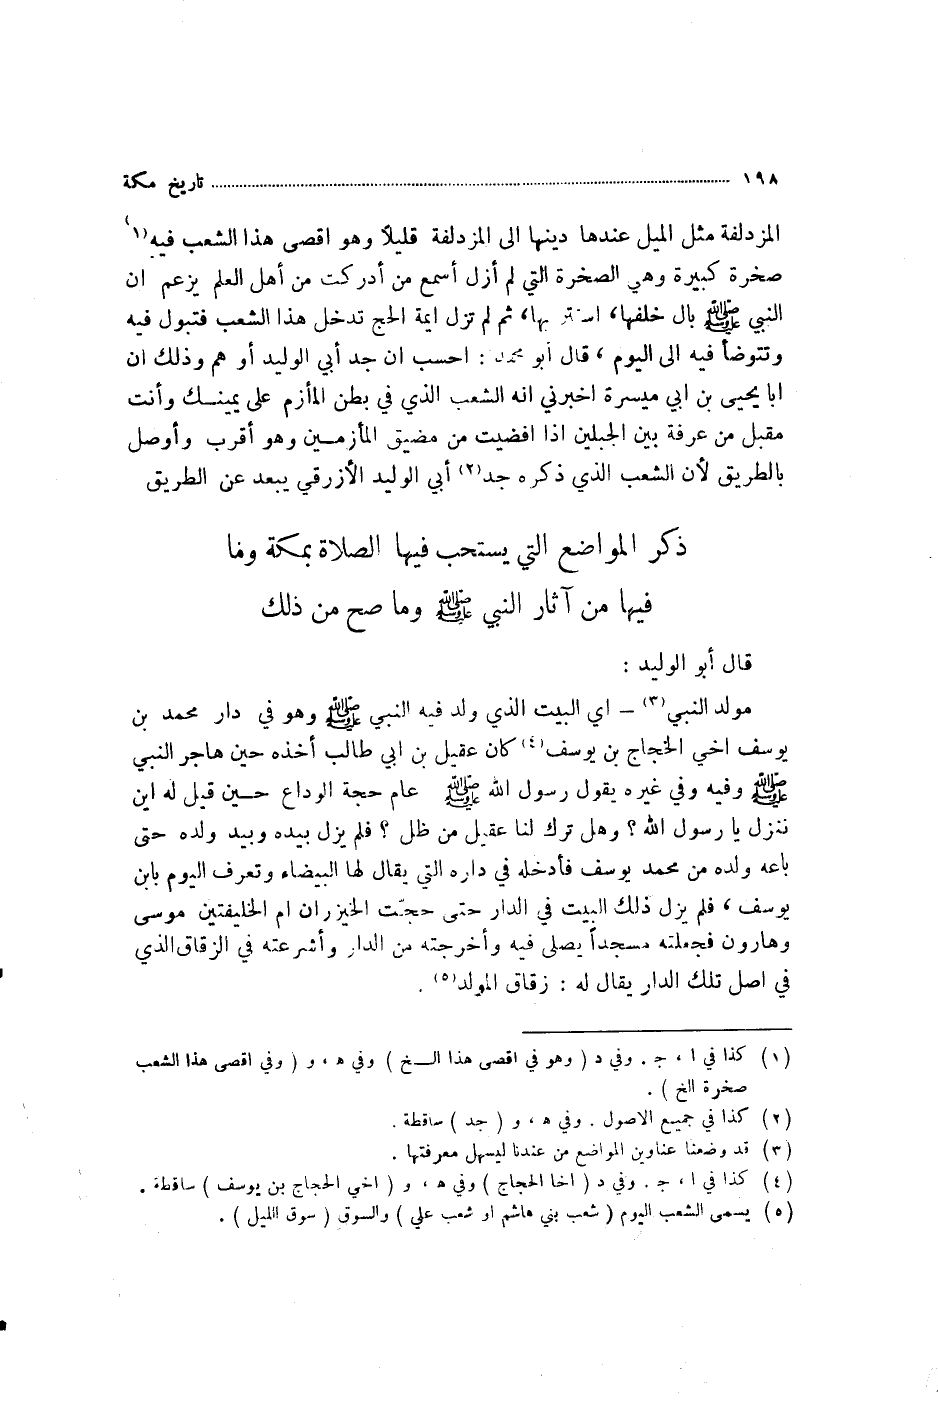 ١٩٨ ........ تاريخ مكة
المزدلفة مثل الميل عندها دينها الى المزدلفة قليلاً وهو اقصى هذا الشعب فيه (١)
صخرة كبيرة وهي الصخرة التي لم أزل أسمع من أدركت من أهل العلم يزعم ان
النبي ﷺ بال خلفها، استتر بها، ثم لم تزل ايمة الحج تدخل هذا الشعب فتبول فيه
وتتوضأ فيه الى اليوم ، قال أبو محمد : احسب ان جد أبي الوليد أو هم وذلك ان
ابا يحيى بن ابي ميسرة اخبرني انه الشعب الذي في بطن المأزم على يمينك وأنت
مقبل من عرفة بين الجبلين اذا افضيت من مضيق المأزمين وهو أقرب وأوصل
بالطريق لأن الشعب الذي ذكره جد (٢) أبي الوليد الأزرقي يبعد عن الطريق
ذكر المواضع التي يستحب فيها الصلاة بمكة وما
فيها من آثار النبي ﷺ وما صح من ذلك
قال أبو الوليد :
مولد النبي (٣) – اي البيت الذي ولد فيه النبي ﷺ وهو في دار محمد بن
يوسف اخي الحجاج بن يوسف (٤) كان عقيل بن ابي طالب أخذه حين هاجر النبي
ﷺ وفيه وفي غيره يقول رسول الله ﷺ عام حجة الوداع حين قيل له اين
ننزل يا رسول الله ؟ وهل ترك لنا عقيل من ظل ؟ فلم يزل بيده وبيد ولده حتى
باعه ولده من محمد يوسف فأدخله في داره التي يقال لها البيضاء وتعرف اليوم بابن
يوسف ، فلم يزل ذلك البيت في الدار حتى حجّت الخيزران ام الخليفتين موسى
وهارون فجعلته مسجداً يصلى فيه وأخرجته من الدار وأشرعته في الزقاق الذي
في اصل تلك الدار يقال له : زقاق المولد (٥) .
(١) كذا في ا ، ج . وفي د ( وهو في اقصى هذا الـخ ) وفي ه ، و ( وفي اقصى هذا الشعب
صخرة الخ ) .
(٢) كذا في جميع الاصول . وفي ه ، و ( جد ) ساقطة .
(٣) قد وضعنا عناوين المواضع من عندنا ليسهل معرفتها .
(٤) كذا في ا ، ج . وفي د ( اخا الحجاج ) وفي ه ، و ( اخي الحجاج بن يوسف ) ساقطة .
(٥) يسمى الشعب اليوم ( شعب بني هاشم او شعب علي ) والسوق ( سوق الليل ) .